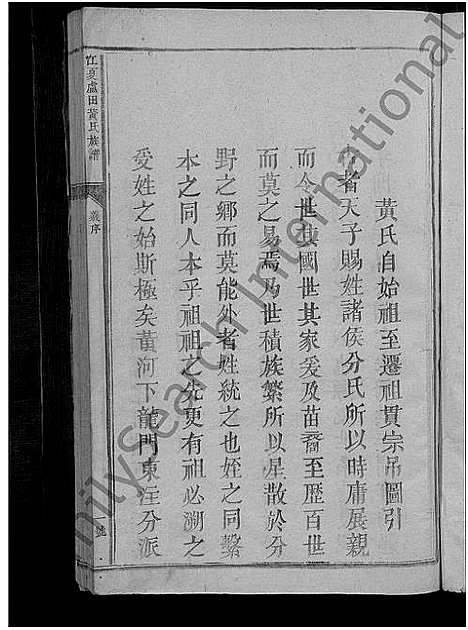 江夏盧田黃氏族譜
義序
一號
黃氏自始祖至遷祖貫宗吊圖引
者天子賜姓諸侯分氏所以時庸展親
而令世其國世其家爰及苗裔至歷百世
而莫之易焉乃世積族繁所以星散於分
野之鄉而莫能外者姓統之也姓之同繫
本之同人本乎祖祖之先更有祖必溯之
受姓之始斯極矣黃河下龍門東注分派
FamilySearch International